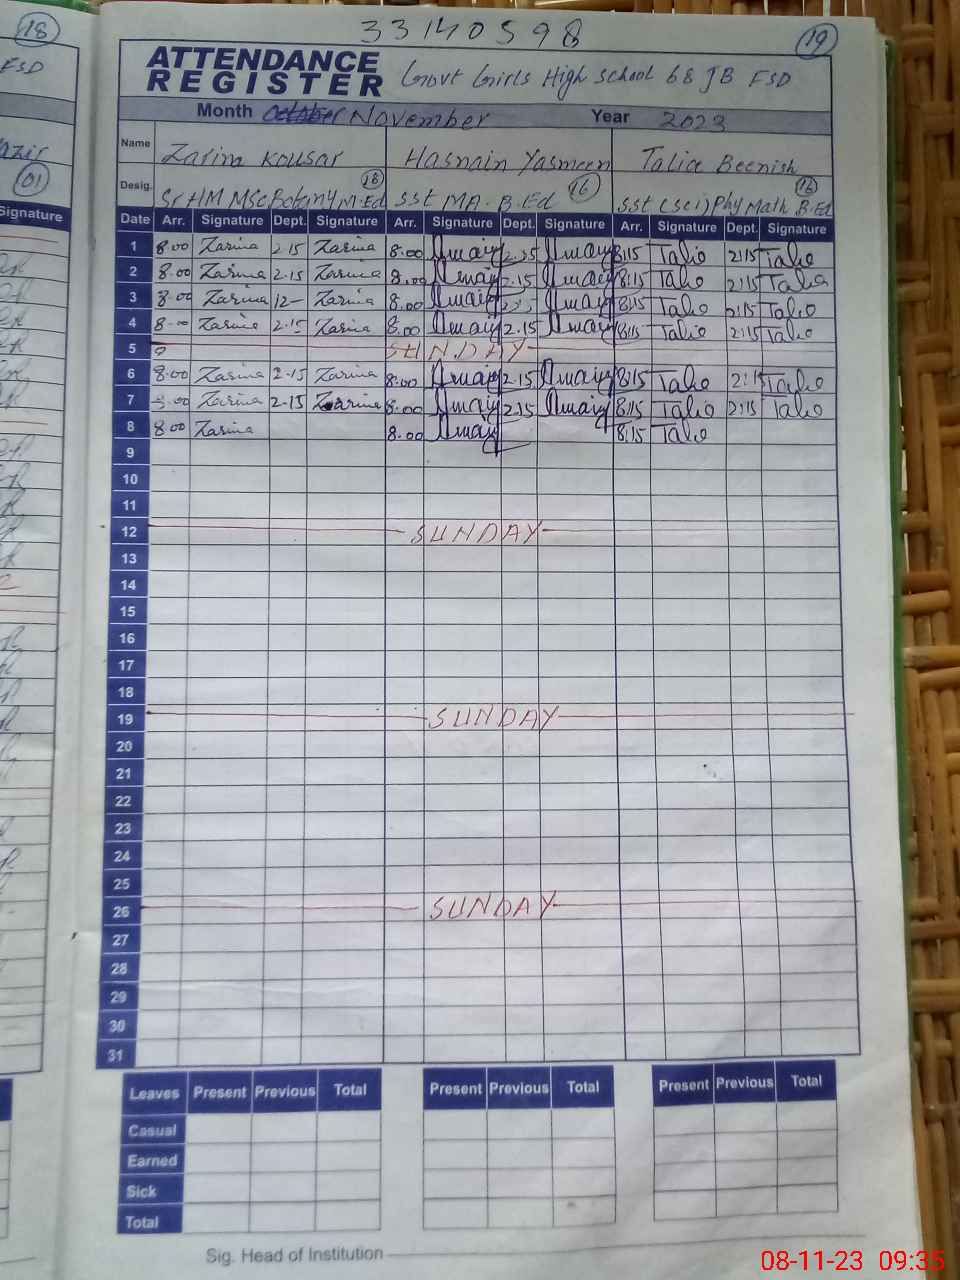 33140598
18
19
ATTENDANCE
REGISTER
Govt Girls High School 68 JB FSD
FSD
Month October November Year 2023
Name Zarina Kousar Hasnain Yasmeen Talia Beenish
01
18 16 16
Desig. Sr HM MSc Botany M.Ed SST MA-B.Ed SST (Sci) Phy Math B.Ed
Signature
Date Arr. Signature Dept. Signature Arr. Signature Dept. Signature Arr. Signature Dept. Signature
1 8.00 Zarina 2.15 Zarina 8.00 2.25 8:15 Talia 2:15 Talia
2 8.00 Zarina 2.15 Zarina 8.00 2.15 8:15 Talia 2:15 Talia
3 8.00 Zarina 12- Zarina 8.00 8:15 Talia 2:15 Talia
4 8.00 Zarina 2.15 Zarina 8.00 2.15 8:15 Talia 2:15 Talia
5 SUNDAY
6 8.00 Zarina 2.15 Zarina 8.00 2.15 8:15 Talia 2:15 Talia
7 8.00 Zarina 2.15 Zarina 8.00 2.15 8:15 Talia 2:15 Talia
8 8.00 Zarina 8.00 8:15 Talia
9
10
11
12 SUNDAY
13
14
15
16
17
18
19 SUNDAY
20
21
22
23
24
25
26 SUNDAY
27
28
29
30
31
Leaves Present Previous Total Present Previous Total Present Previous Total
Casual
Earned
Sick
Total
Sig. Head of Institution
08-11-23 09:35